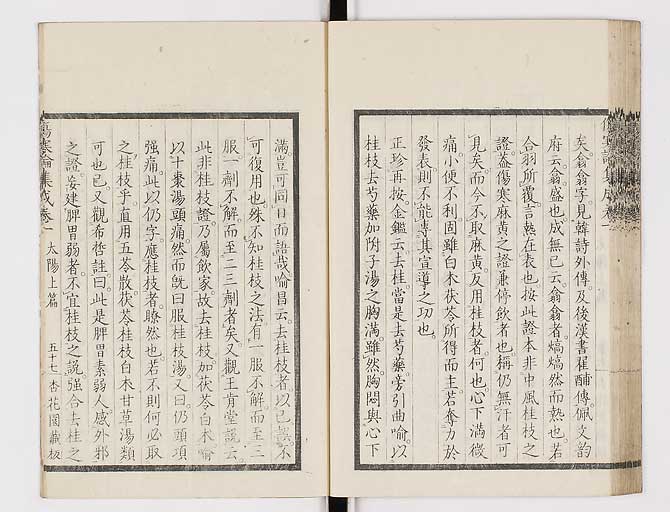 矣翕翕字見韓詩外傳及後漢書翟酺傳佩文韵
府云翕盛也成無己云翕翕者熇熇然而熱也若
合羽所覆言熱在表也按此證本非中風桂枝之
證葢傷寒麻黃之證兼停飲者也稱仍無汗者可
見矣而今不取麻黃反用桂枝者何也心下滿微
痛小便不利固雖白朮茯苓所得而主若奪力於
發表則不能專其宣導之功也
正珍再按金鑑云去桂當是去芍藥旁引曲喻以
桂枝去芍藥加附子湯之胸滿雖然胸悶與心下
傷寒論集成卷一
滿豈可同日而語哉喻昌云去桂枝者以已誤不
可復用也殊不知桂枝之法有一服不解而至三
服一劑不解而至二三劑者矣又觀王肯堂說云
此非桂枝證乃屬飲家故去桂枝加茯苓白朮喻
以十棗湯頭痛然而旣曰服桂枝湯又曰仍頭項
强痛此以仍字應桂枝者瞭然也若不則何必取
之桂枝乎直用五苓散茯苓桂枝白朮甘草湯類
可也已又觀希哲註曰此是脾胃素弱人感外邪
之證妄建脾胃弱者不宜桂枝之說强合去桂之
傷寒論集成卷一 太陽上篇 五十七 杏花園藏板